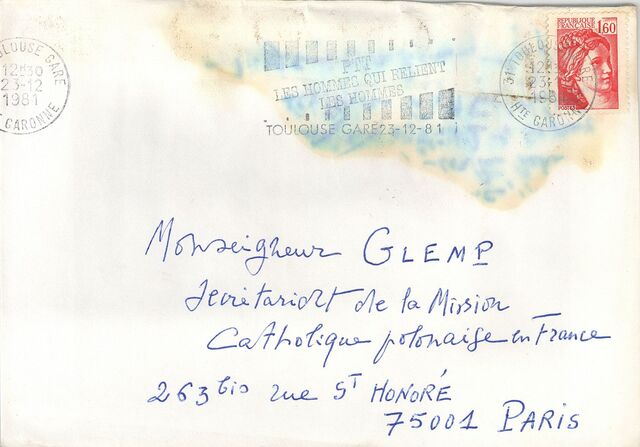 TOULOUSE GARE
12H30
23-12
1981
HTE GARONNE
PTT
LES HOMMES QUI RELIENT
LES HOMMES
TOULOUSE GARE 23-12-81
31 TOULOUSE GARE
12H30
23-12
1981
HTE GARONNE
REPUBLIQUE
FRANCAISE
1,60
POSTES
Monseigneur GLEMP
Secrétariat de la Mission
Catholique polonaise en France
263 bis rue ST HONORÉ
75001 PARIS